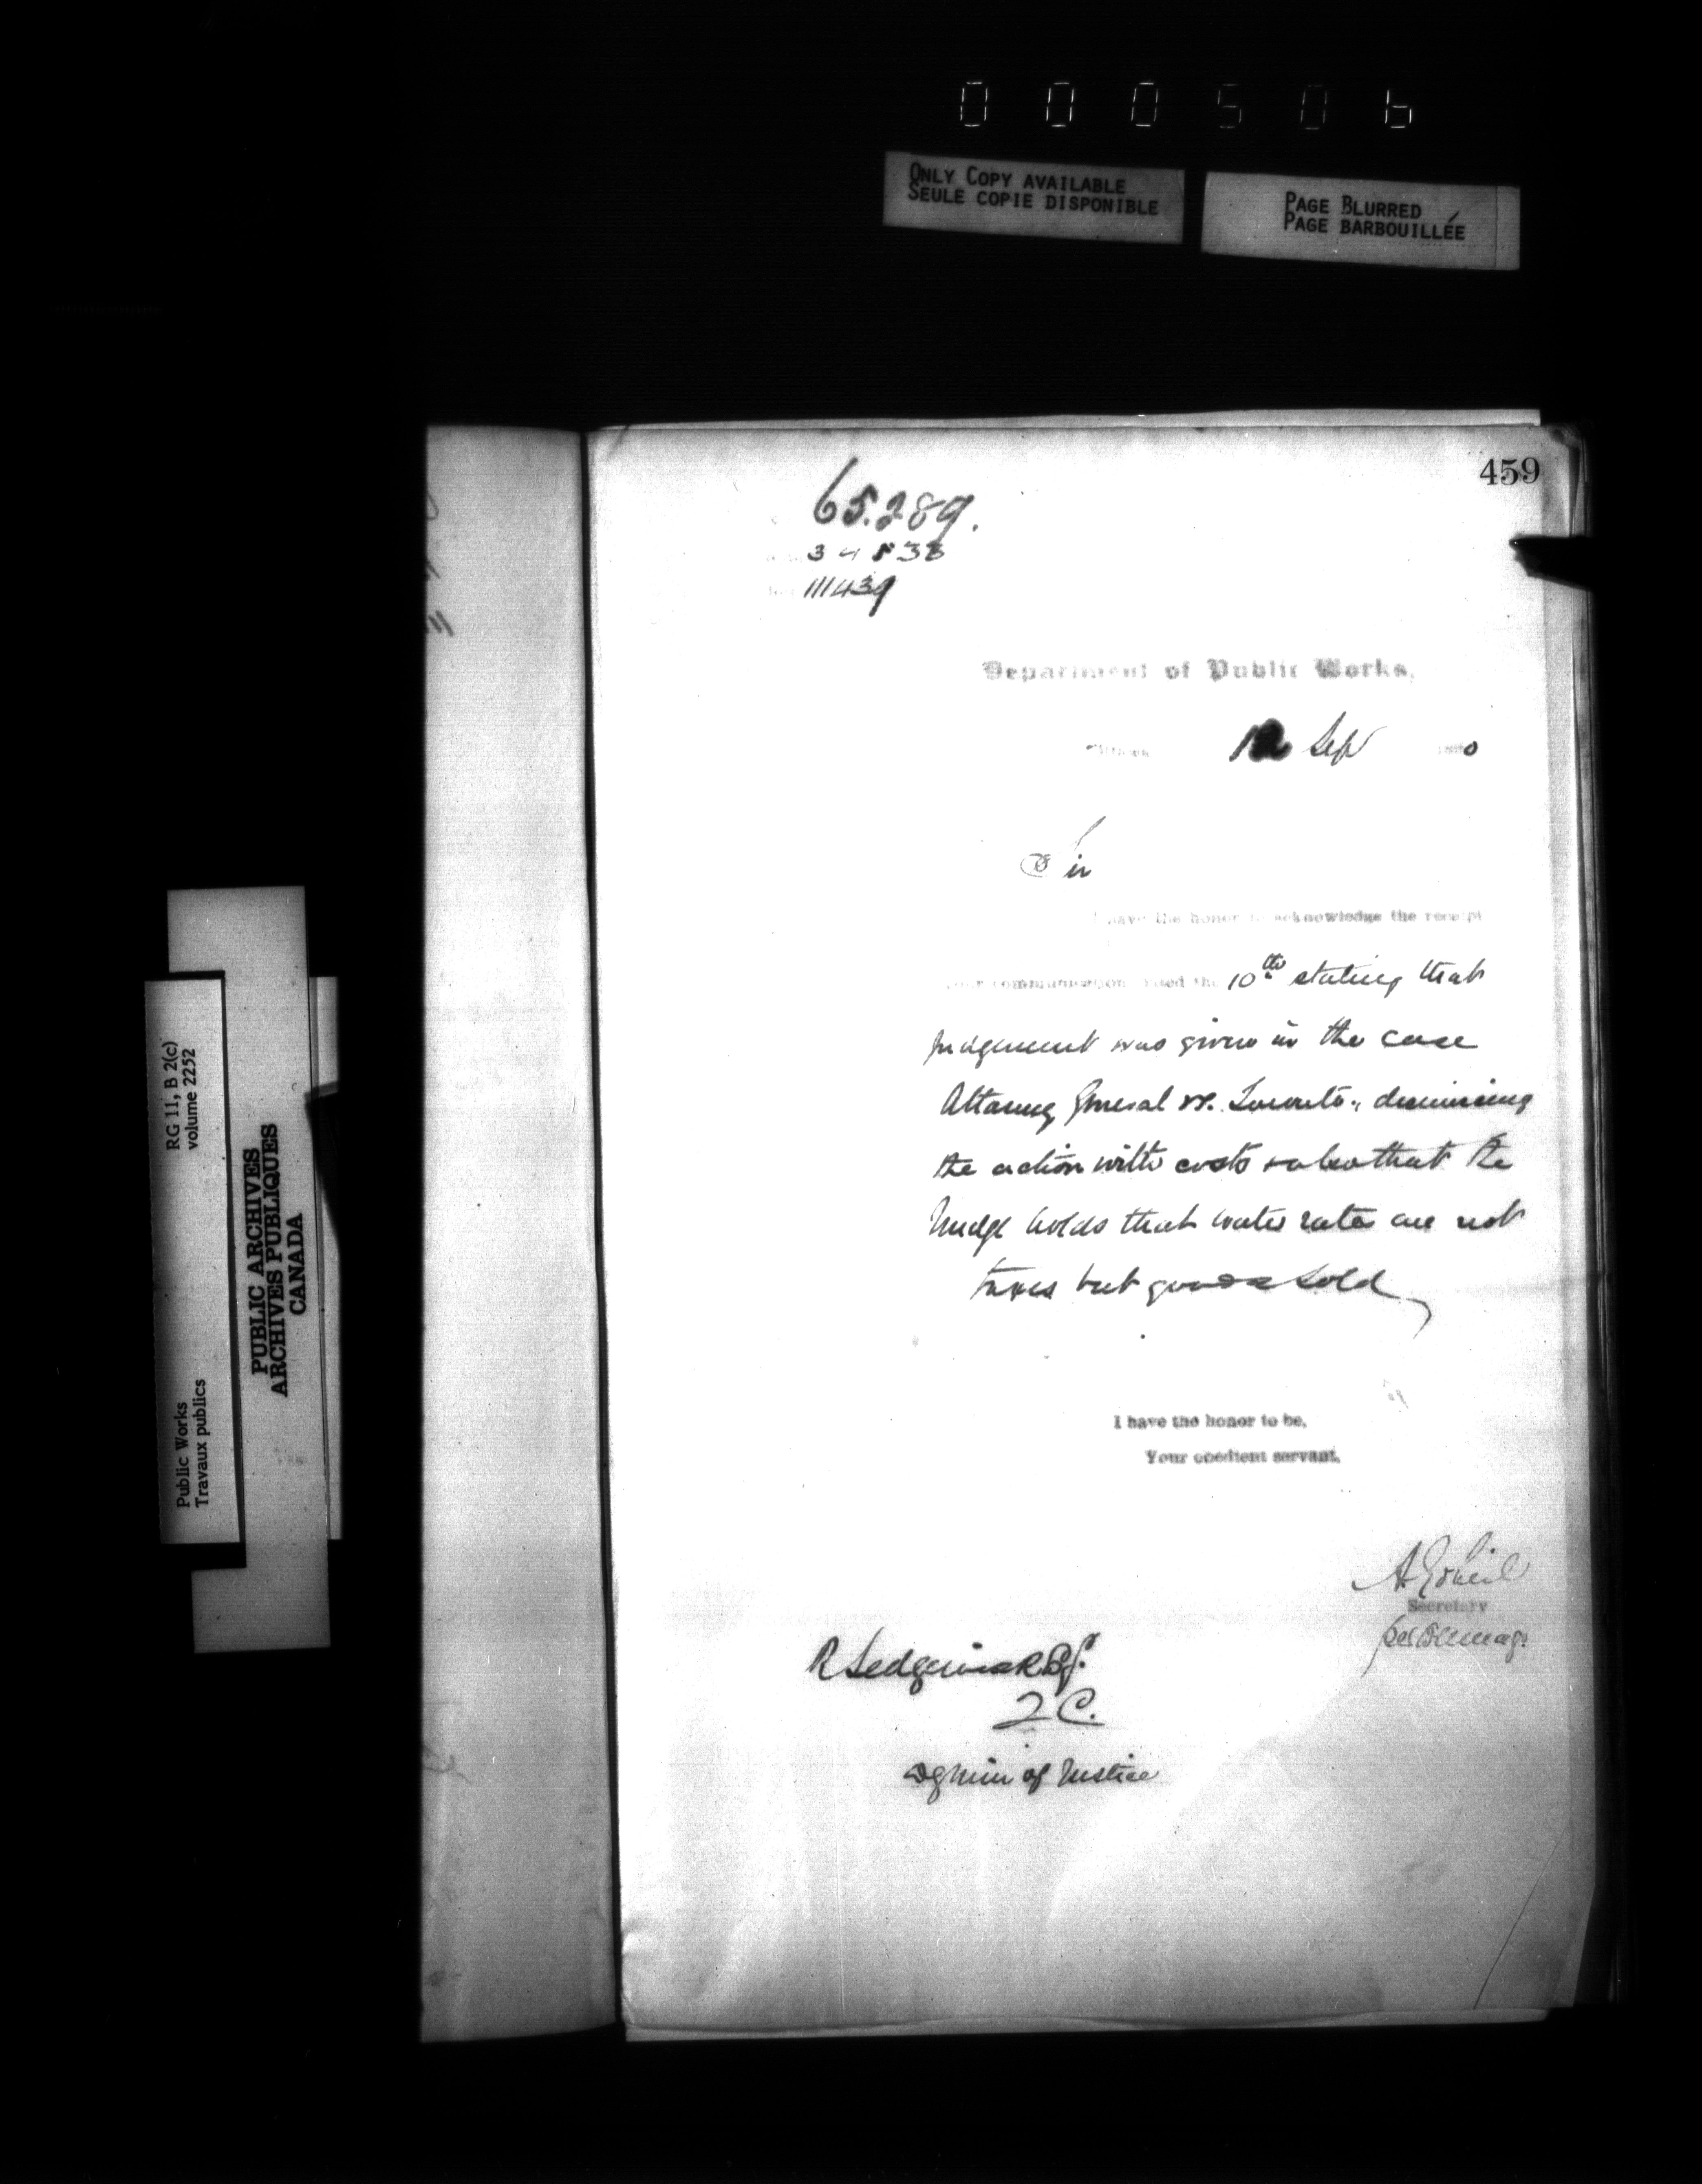 000506
ONLY COPY AVAILABLE
SEULE COPIE DISPONIBLE
PAGE BLURRED
PAGE BARBOUILLÉE
459
65.289.
34538
111439
Department of Public Works,
Ottawa 12 Sep 1890
Sir
I have the honor to acknowledge the receipt
your communication dated the 10th stating that
judgement was given in the case
Attorney General vs. Toronto, dismissing
the action with costs & also that the
Judge holds that water rates are not
taxes but goods sold
I have the honor to be,
Your obedient servant,
Secretary
R Sedgewick Esq.
Q C.
Dy Min of Justice
RG 11, B 2(c)
volume 2252
Public Works
Travaux publics
PUBLIC ARCHIVES
ARCHIVES PUBLIQUES
CANADA